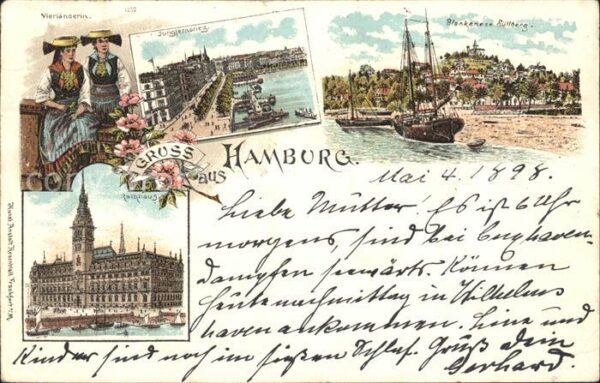 Vierländerin.
1252
Jungfernstieg
Blankenese Süllberg.
GRUSS
aus
HAMBURG.
Rathhaus
Mai 4. 1898.
Liebe Mutter! Es ist 6 Uhr
morgens, sind bei Cuxhaven
dampfen seewärts. Können
heute nachmittag in Wilhelms
haven ankommen. Line und
Kinder sind noch im süßen Schlaf. Gruß dein
Gerhard.
Kunst Anstalt Rosenblatt Frankfurt a/M.